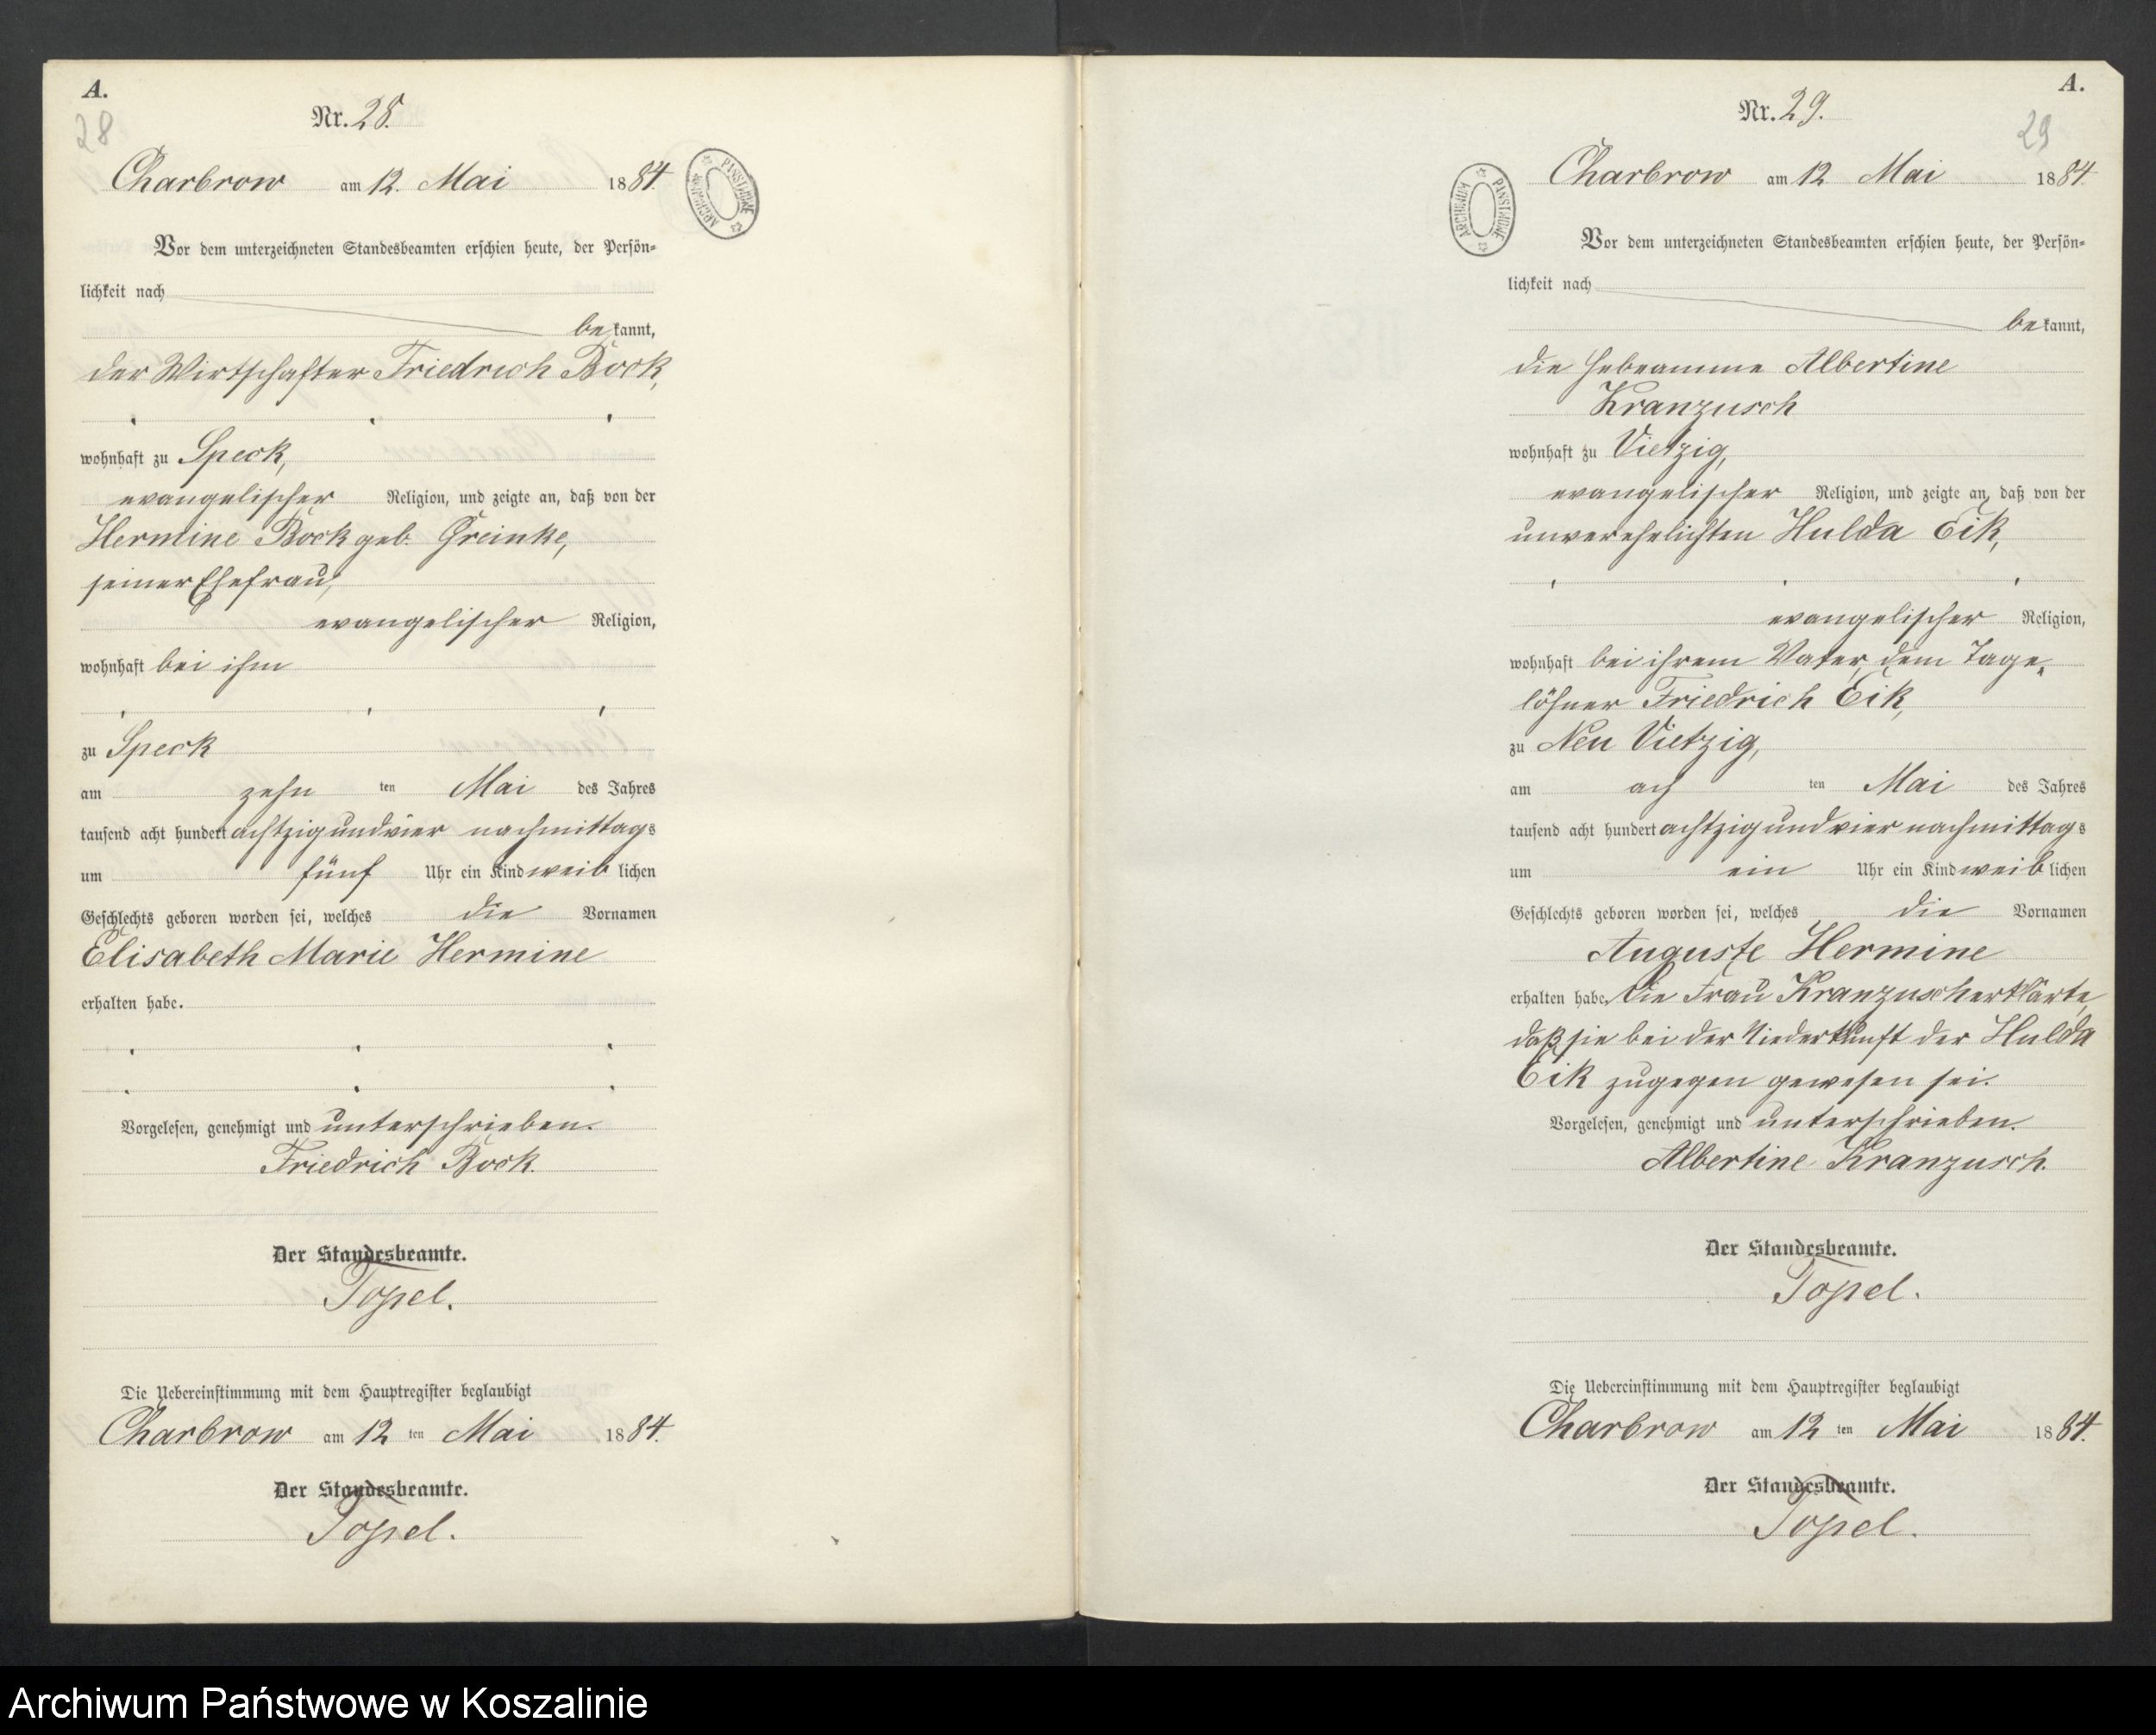 A.
28
Nr. 28.
Charbrow am 12. Mai 1884.
PANSTWOWE ARCHIWUM
Vor dem unterzeichneten Standesbeamten erschien heute, der Persön-
lichkeit nach
bekannt,
der Wirtschafter Friedrich Bock,
wohnhaft zu Speck,
evangelischer Religion, und zeigte an, daß von der
Hermine Bock geb. Greinke,
seiner Ehefrau,
evangelischer Religion,
wohnhaft bei ihm
zu Speck
am zehn ten Mai des Jahres
tausend acht hundert achtzig und vier nachmittags
um fünf Uhr ein Kind weiblichen
Geschlechts geboren worden sei, welches die Vornamen
Elisabeth Marie Hermine
erhalten habe.
Vorgelesen, genehmigt und unterschrieben.
Friedrich Bock.
Der Standesbeamte.
Topel.
Die Uebereinstimmung mit dem Hauptregister beglaubigt
Charbrow am 12 ten Mai 1884.
Der Standesbeamte.
Topel.
A.
29
Nr. 29.
Charbrow am 12 Mai 1884.
ARCHIWUM PANSTWOWE
Vor dem unterzeichneten Standesbeamten erschien heute, der Persön-
lichkeit nach
bekannt,
die Hebeamme Albertine
Kranzusch
wohnhaft zu Vietzig,
evangelischer Religion, und zeigte an, daß von der
unverehelichten Hulda Eik,
evangelischer Religion,
wohnhaft bei ihrem Vater, dem Tage-
löhner Friedrich Eik,
zu Neu Vietzig,
am ach ten Mai des Jahres
tausend acht hundert achtzig und vier nachmittags
um ein Uhr ein Kind weiblichen
Geschlechts geboren worden sei, welches die Vornamen
Auguste Hermine
erhalten habe. Die Frau Kranzusch erklärte,
daß sie bei der Niederkunft der Hulda
Eik zugegen gewesen sei.
Vorgelesen, genehmigt und unterschrieben.
Albertine Kranzusch.
Der Standesbeamte.
Topel.
Die Uebereinstimmung mit dem Hauptregister beglaubigt
Charbrow am 12 ten Mai 1884.
Der Standesbeamte.
Topel.
Archiwum Państwowe w Koszalinie